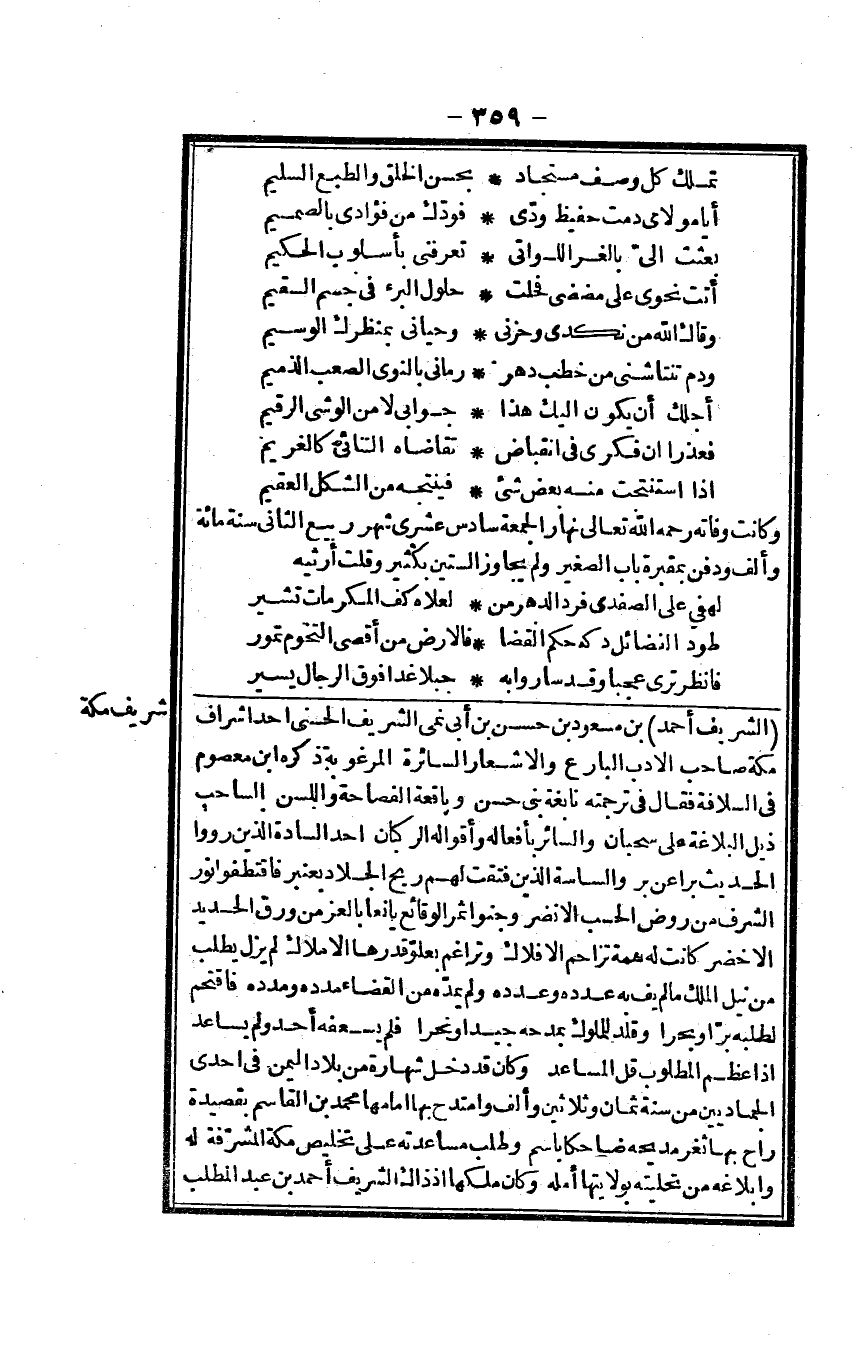 - ٣٥٩ -
تملك كل وصف مستجاد * بحسن الخلق والطبع السليم
أيامولاى دمت حفيظ ودّى * فودّك من فؤادى بالصميم
بعثت الىّ بالغر اللواتى * تعرفنى بأسلوب الحكيم
أتت نحوى على مضض فحلت * حلول البرء فى جسم السقيم
وقاك الله من نكدى وحزنى * وحيانى بمنظرك الوسيم
ودم تنتاشنى من خطب دهر * رمانى بالنوى الصعب الذميم
أجلك أن يكون اليك هذا * جوابى لا من الوشى الرقيم
فعذرا ان فكرى فى انقباض * تقاضاه النتائج كالغريم
اذا استنتجت منه بعض شئ * فينتجه من الشكل العقيم
وكانت وفاته رحمه الله تعالى نهار الجمعة سادس عشرى شهر ربيع الثانى سنة مائة
وألف ودفن بمقبرة باب الصغير ولم يجاوز الستين بكثير وقلت أرثيه
لهفي على الصفدى فرد الدهر من * لعلاه كف المكرمات تشير
طود الفضائل دكه حكم القضا * فالارض من أقصى التخوم تمور
فانظر ترى عجبا وقد ساروا به * جبلا غدا فوق الرجال يسير
شريف مكة
(الشريف أحمد) بن مسعود بن حسن بن أبى نمى الشريف الحسنى احد اشراف
مكة صاحب الادب البارع والاشعار السائرة المرغوبة ذكره ابن معصوم
فى السلافة فقال فى ترجمته نابغة بنى حسن وباقعة الفصاحة واللسن الساحب
ذيل البلاغة على سحبان والسائر بأفعاله وأقواله الركبان احد السادة الذين رووا
الحديث براعن بر والساسة الذين فتقت لهم ريح الجلاد بعنبر فاقتطفوا نور
الشرف من روض الحسب الانضر وجنوا ثمر الوقائع يانعا بالعز من ورق الحديد
الاخضر كانت له همة تزاحم الافلاك وتراغم بعلوّ قدرها الاملاك لم يزل يطلب
من نيل الملك مالم يف به عدده وعدده ولم يمدّه من القضاء مدده ومدده فاقتحم
لطلبه برّا وبحرا وقلد للملوك بمدحه جيدا ونحرا فلم يسعفه أحد ولم يساعد
اذا عظم المطلوب قل المساعد وكان قد دخل شهارة من بلاد اليمن فى احدى
الجماديين من سنة ثمان وثلاثين وألف وامتدح بها امامها محمد بن القاسم بقصيدة
راح بها ثغر مديحه ضاحكا باسم وطلب مساعدته على تخليص مكة المشرّفة له
وابلاغه من تحليته بولايتها أمله وكان ملكها اذ ذاك الشريف أحمد بن عبد المطلب